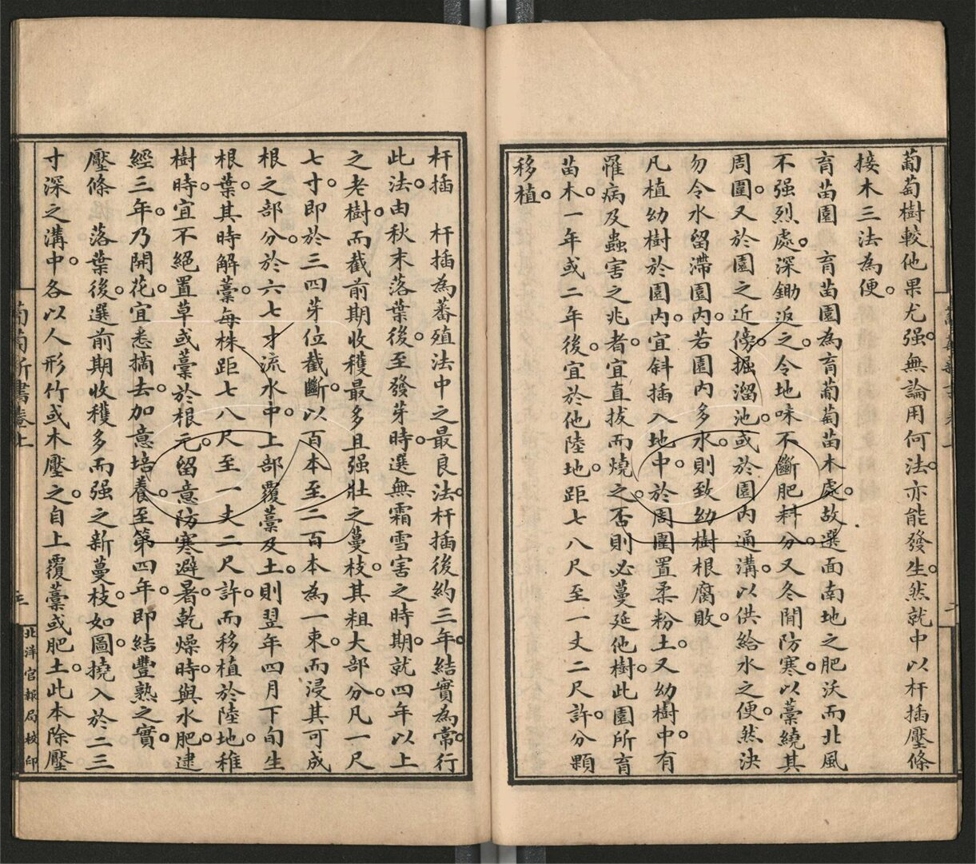 葡萄樹較他果尤强。無論用何法。亦能發生。然就中以杆插壓條
接木三法為便。
育苗園　育苗園為育葡萄苗木處。故選面南地之肥沃而北風
不强烈處。深鋤返之。令地味不斷肥料分。又冬間防寒。以藁繞其
周圍。又於園之近傍。掘溜池。或於園內通溝。以供給水之便。然決
勿令水留滯園內。若園內多水。則致幼樹根腐敗。
凡植幼樹於園內。宜斜插入地中。於周圍置柔粉土。又幼樹中。有
罹病及蟲害之兆者。宜直拔而燒之。否則必蔓延他樹。此園所育
苗木。一年或二年後。宜於他陸地。距七八尺至一丈二尺許。分顆
移植。
杆插　杆插為蕃殖法中之最良法。杆插後約三年結實為常。行
此法。由秋末落葉後。至發芽時。選無霜雪害之時期。就四年以上
之老樹。而截前期收穫最多且强壯之蔓枝。其粗大部分。凡一尺
七寸。即於三四芽位截斷。以百本至二百本為一束。而浸其可成
根之部分。於六七寸流水中。上部覆藁及土。則翌年四月下旬生
根葉。其時解藁。每株距七八尺至一丈二尺許。而移植於陸地。稚
樹時宜不絕置草或藁於根元。留意防寒避暑。乾燥時。與水肥。逮
經三年。乃開花。宜悉摘去。加意培養。至第四年。即結豐熟之實。
壓條　落葉後。選前期收穫多而强之新蔓枝。如圖。撓入於二三
寸深之溝中。各以人形竹或木壓之。自上覆藁或肥土。此本除壓
葡萄新書卷上
三
北洋官報局校印